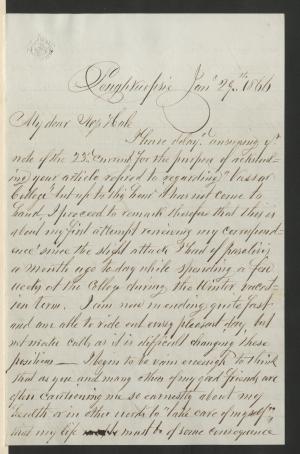 Poughkeepsie Jany 29th 1866
My dear Mrs Hale
I have delayd answering yr
note of the 22d current for the purpose of
ing your article refered to regarding "Vassar
College" but up to this hour it has not come to
hand, I proceed to remark therefore that this is
about my first attempt reviewing my correspond-
ence since the slight attack I had of paralysis
a month ago to day while spending a few
weeks at the College during the Winter vaca-
tion term. I am now mending quite fast
and am able to ride out every pleasant day, but
not make calls as it is difficult changing those
positions — I begin to be vain enough to think
that as you and many others of my good friends are
often cautioning me so earnestly about my
health or in other words to "take care of myself"
that my life must be of some consequence